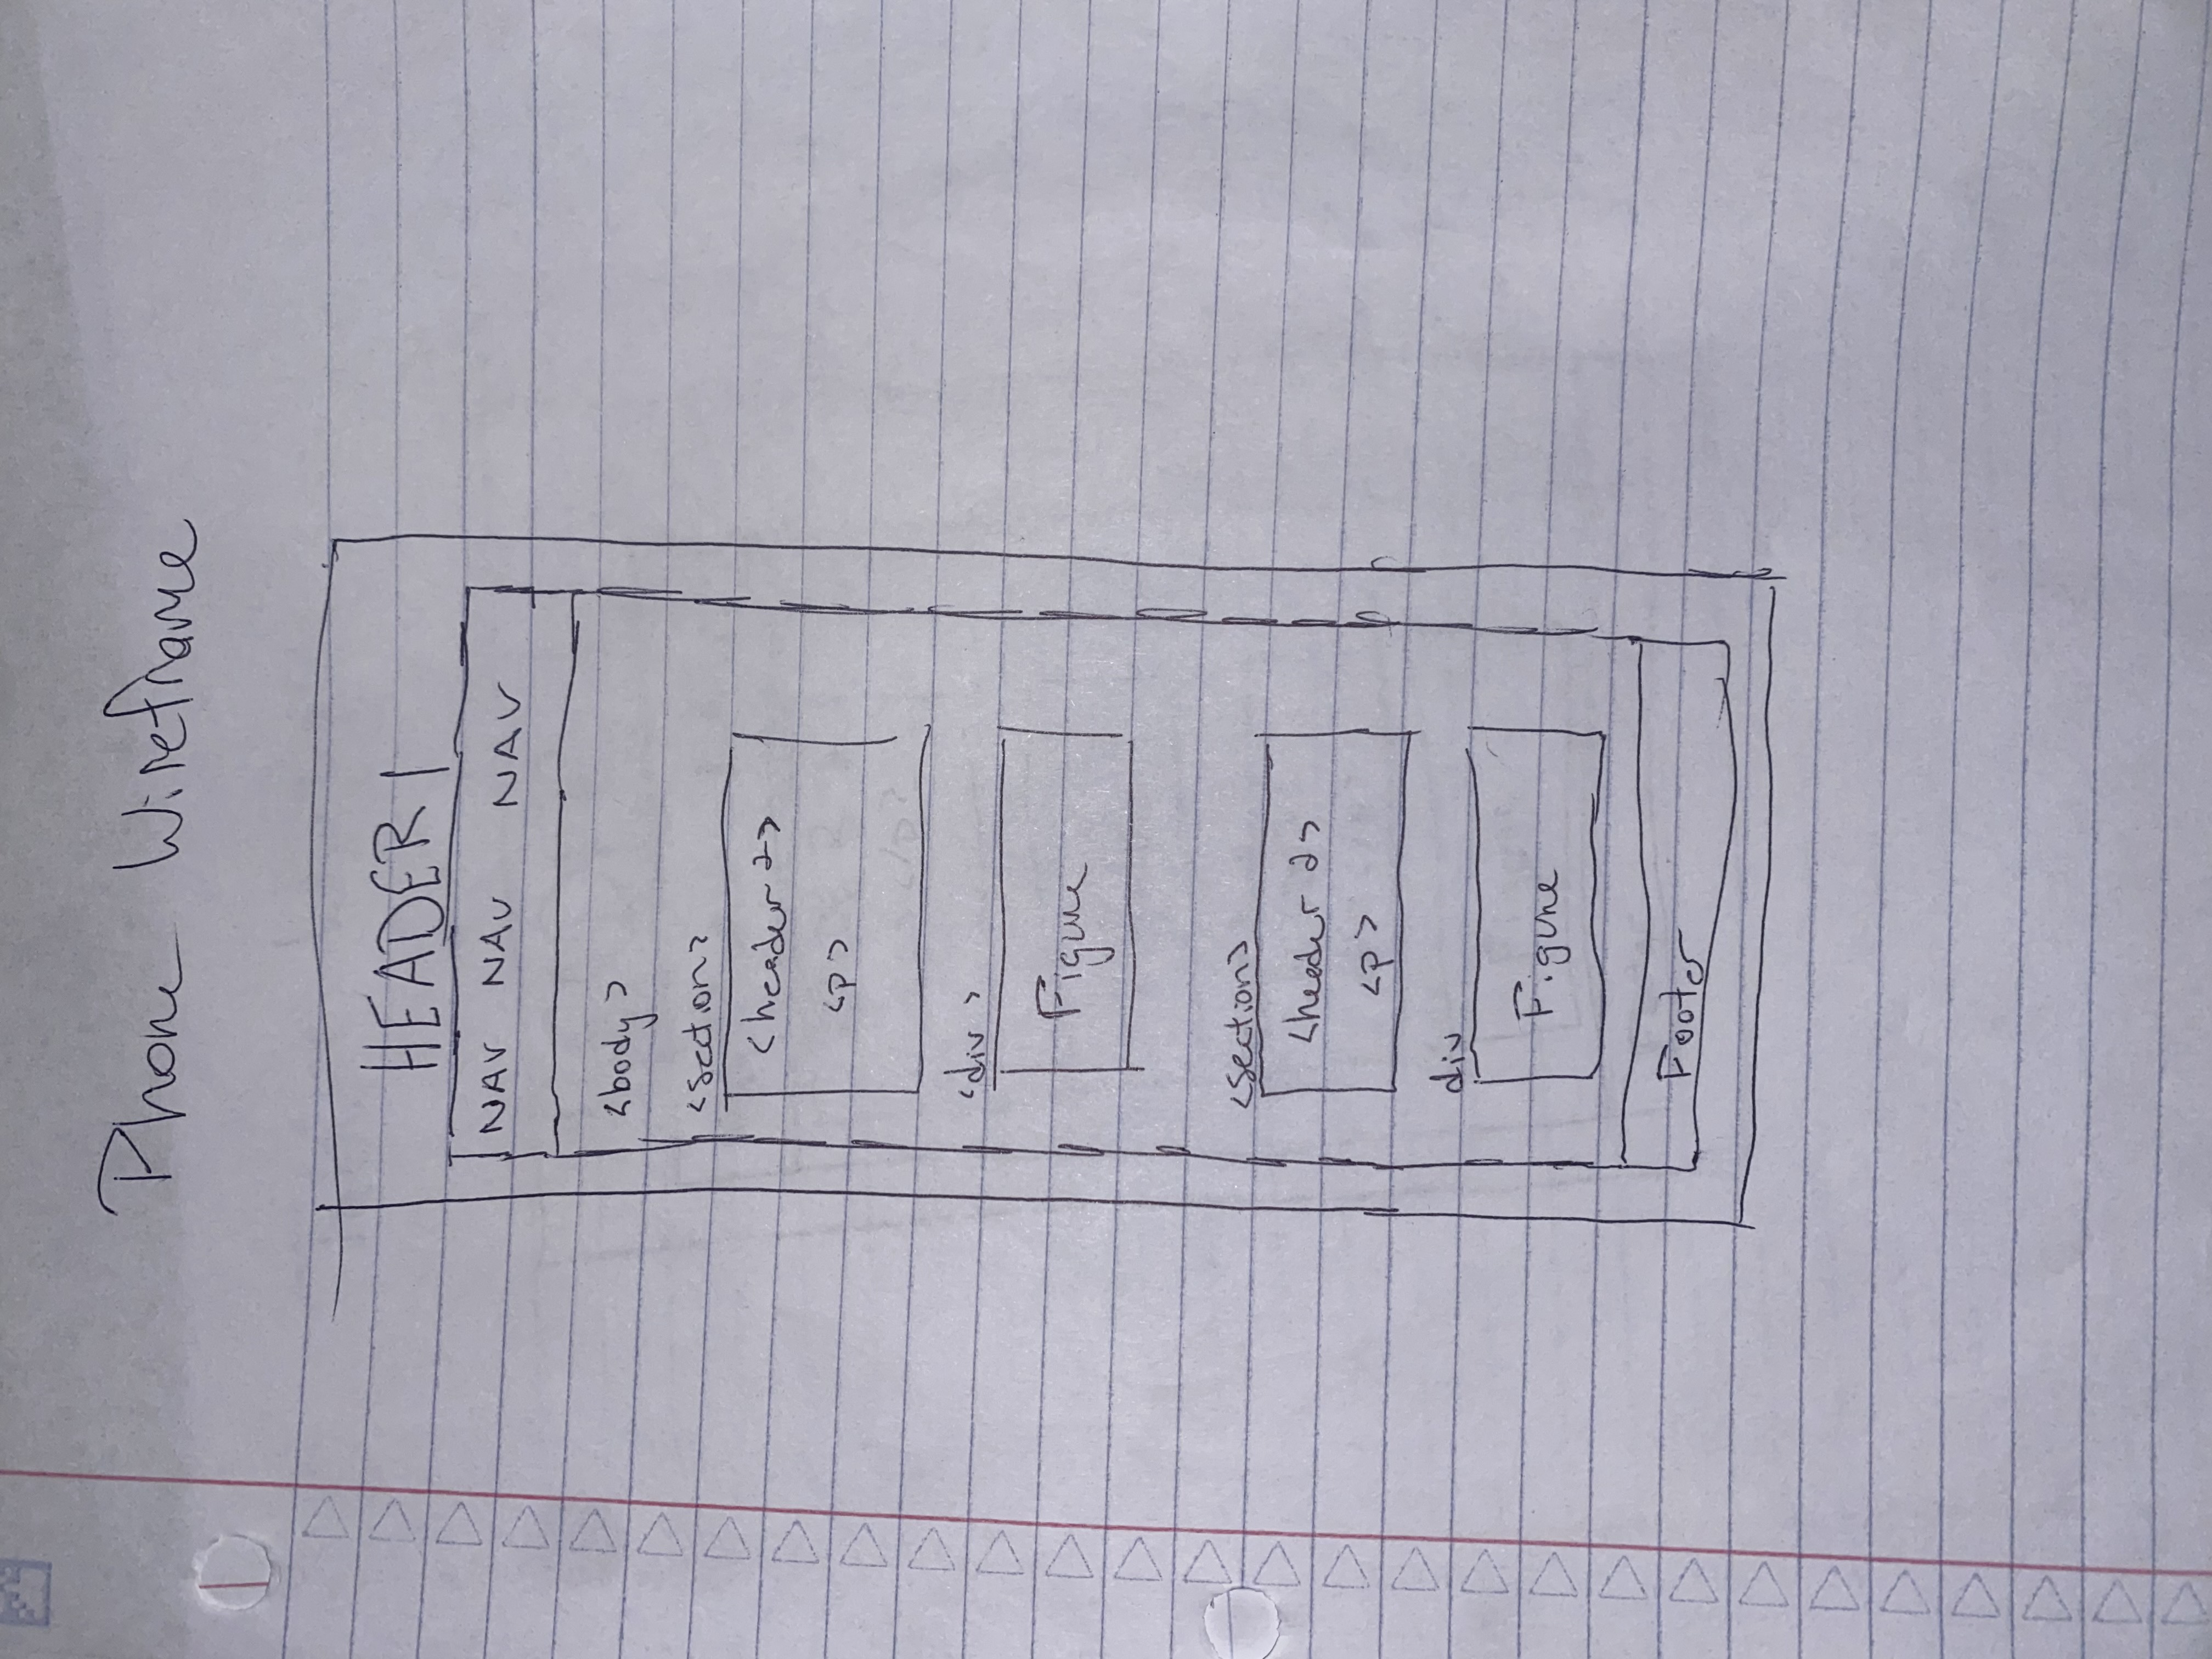 Phone Wireframe
HEADER 1
NAV NAV NAV
<body>
<section>
<header 2>
<p>
<div>
Figure
<section>
<header 2>
<p>
div
Figure
Footer